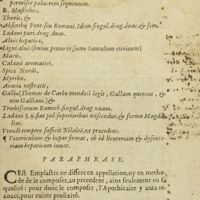 permisce puluerem sequentem.
℞. Mastiches,
Thuris, &
Absinthij Pont. seu Romani. Idem. singul. drag. duas, & sem.
Ladani puri. drag. duas.
Aloes hepaticæ,
Ligni aloes (huius penuria sume Santalum citrinum)
Macis,
Calami aromatici,
Spicæ Nardi,
Myrrhæ,
Acaciæ nostratis,
Gallia (Thomas de Garbo mandat) legit, Gallam quercus, &
non Galliam,) &
Trochiscorum Ramich. singul. drag. unam.
Ladani
superioribus misceatur, & forma Magdaliam
Vtendi tempore sufficit Xiloaloë, ut præcedens.
Ventriculum & hepar firmat, ob id lienteriam & dysenteriam hepaticam iuuat.
PARAPHRASE.
CEst Emplastre ne differe en appellation, ny en methode
de le composer, au precedent, ains seulement en sa
qualité: pour donc le composer, l'Apothicaire y aura recours,
pour euiter prolixité.